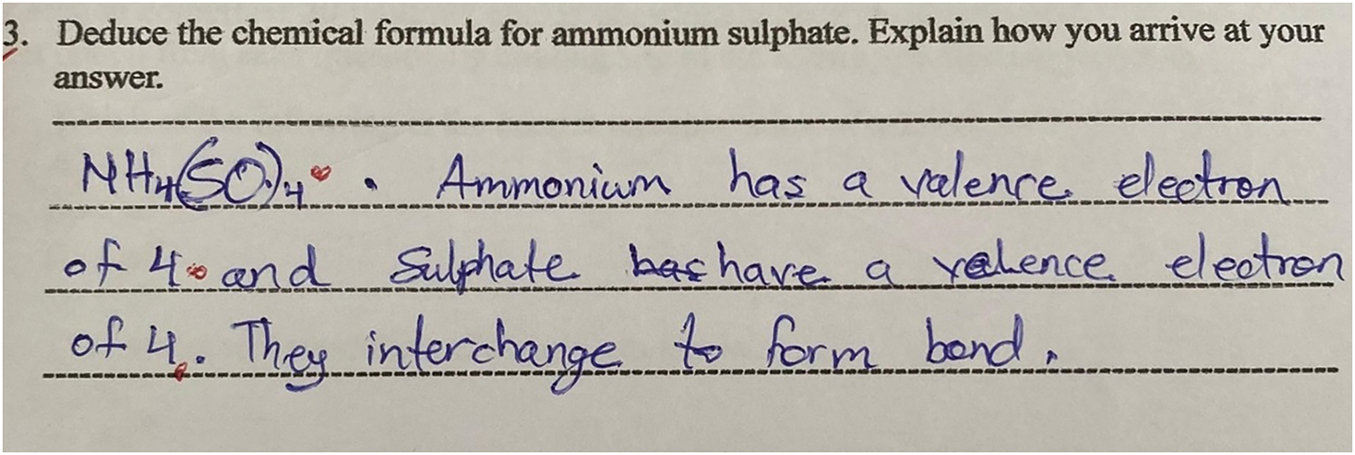 3. Deduce the chemical formula for ammonium sulphate. Explain how you arrive at your
answer.
NH4(SO)4 . Ammonium has a valence electron
of 4 and Sulphate has have a valence electron
of 4. They interchange to form bond.